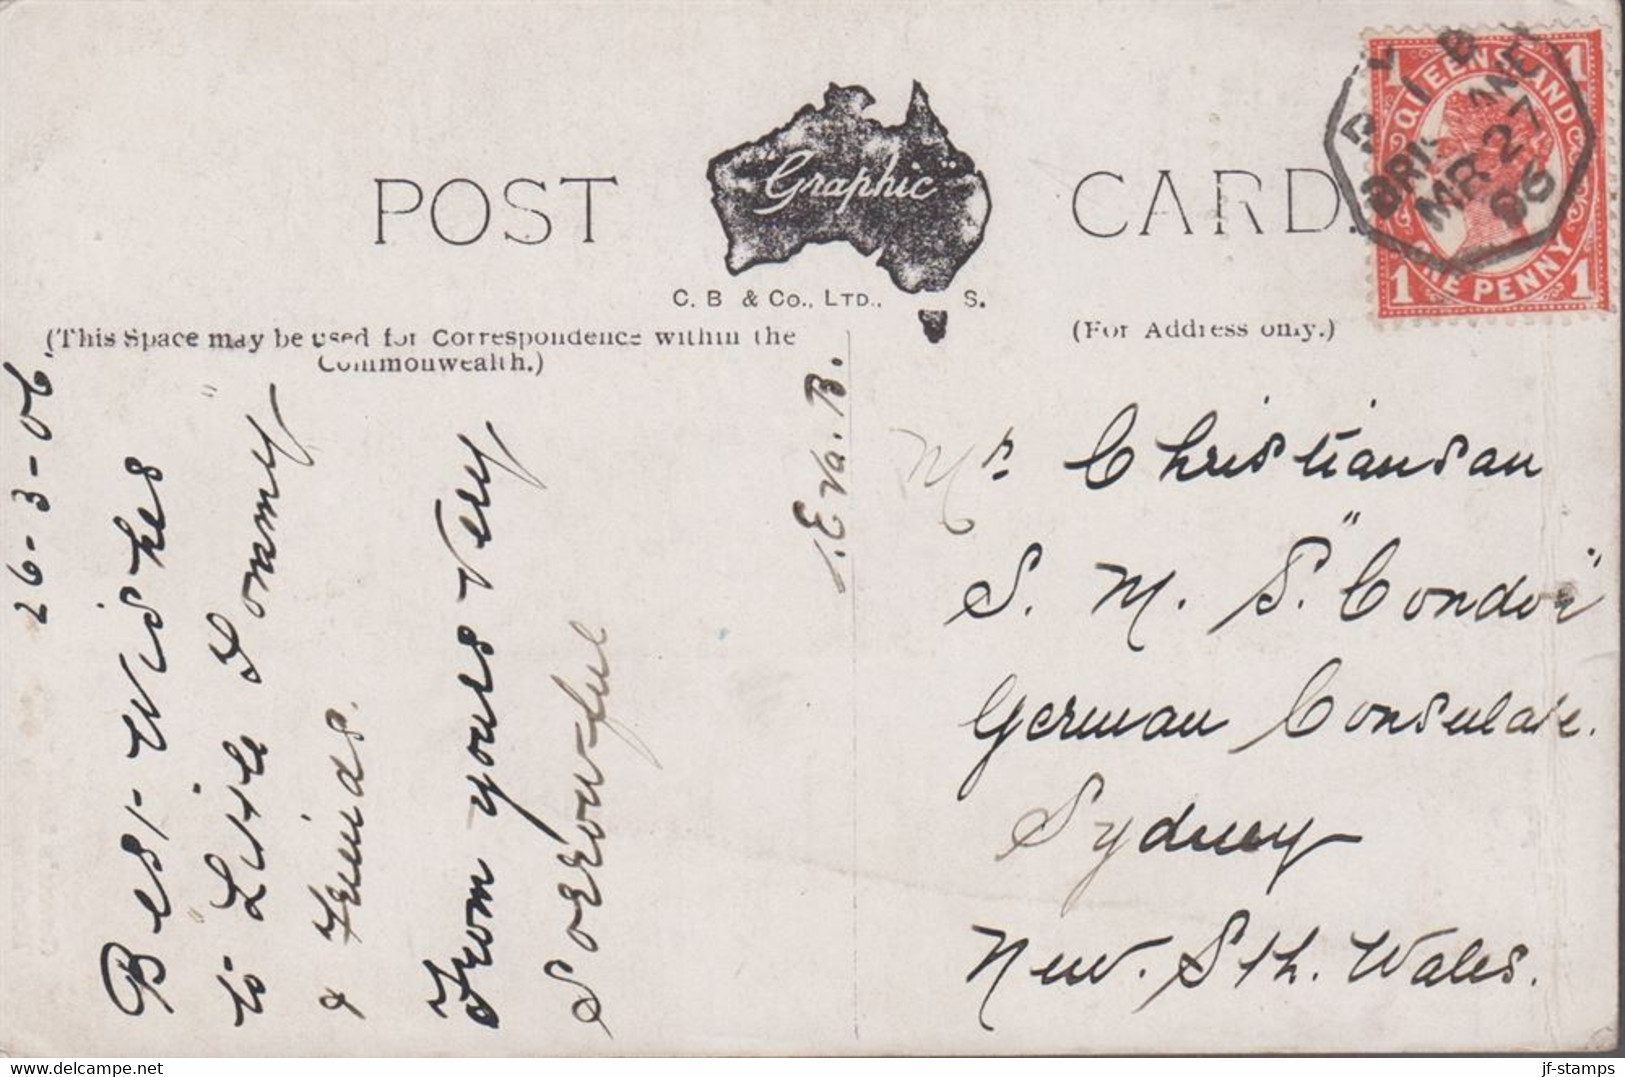 POST "Graphic" CARD.
C. B & Co., LTD., S.
(This Space may be used for Correspondence within the
Commonwealth.)
(For Address only.)
QUEENSLAND
1 1
ONE PENNY
1 1
BRISBANE
MR 27
06
26-3-06.
Best Wishes
to "Little Tommy"
& Freinds.
From yours Very
Sorrowful
Eva. B.
Mr Christiansan
S. M. S. "Condor"
German Consulate.
Sydney
New. Sth. Wales.
www.delcampe.net
jf-stamps